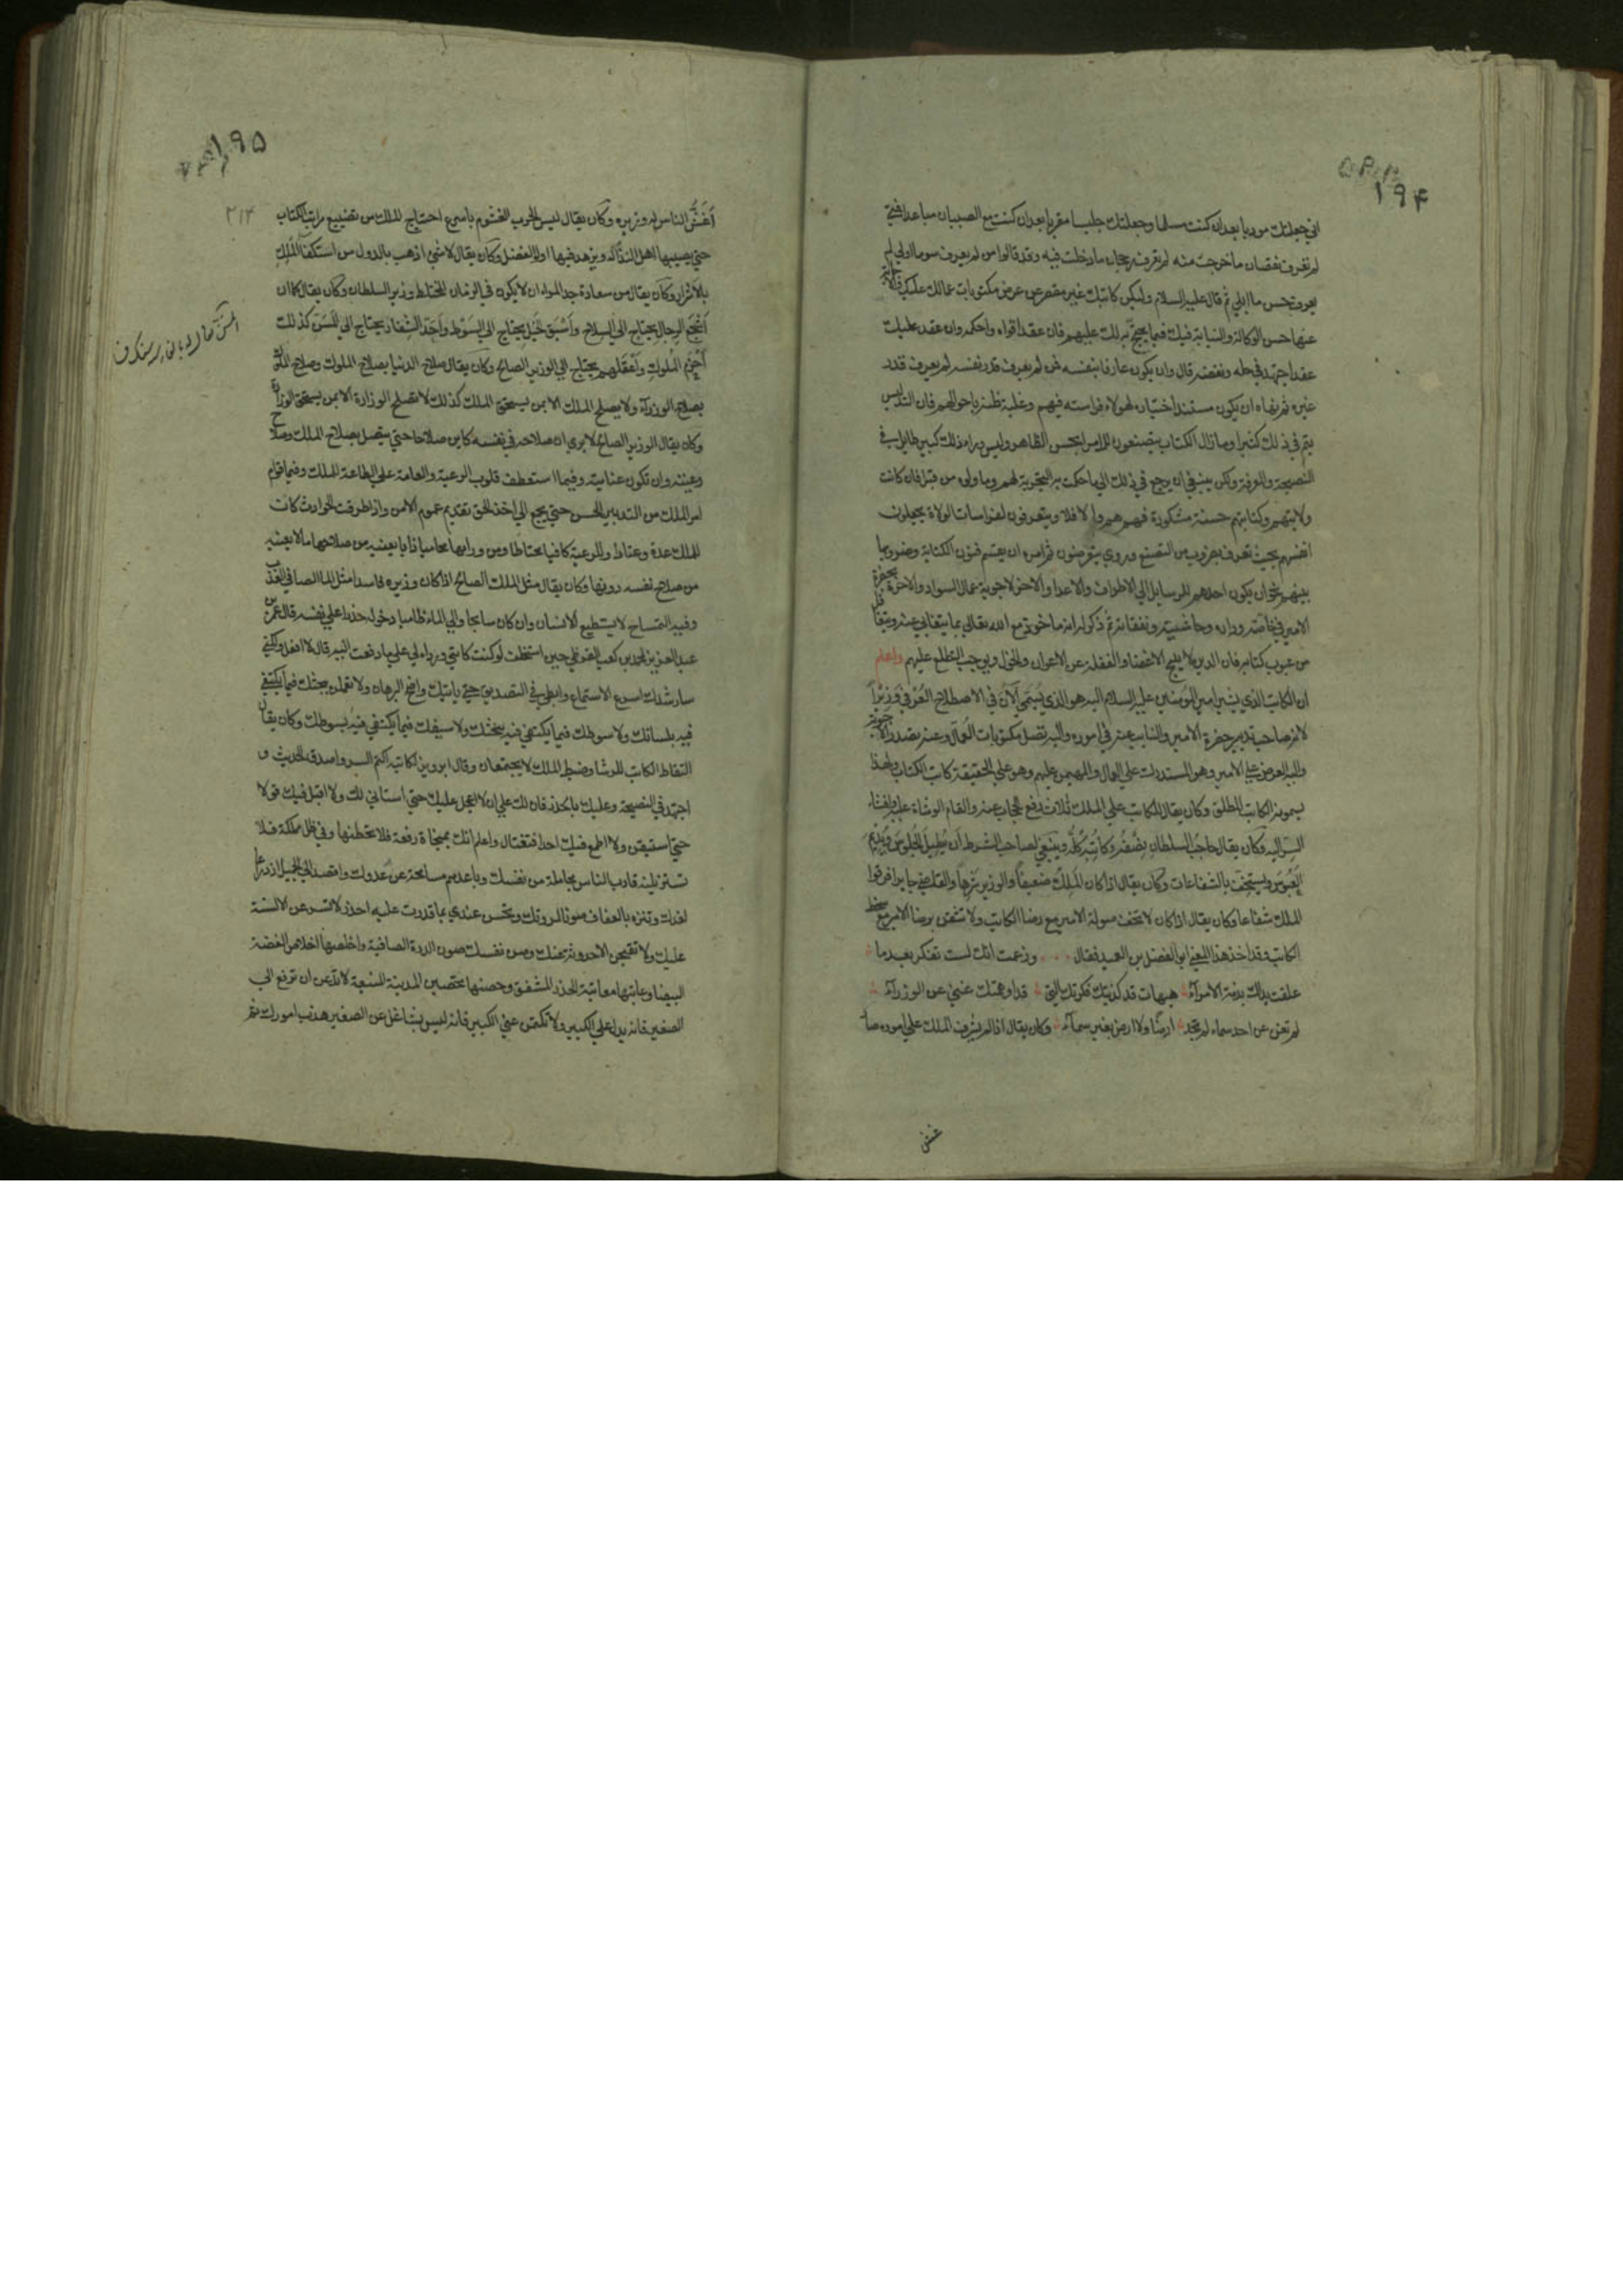 ١٩۴
اني جعلتك مودبا بعد ان كنت مسلما وجعلتك جليسا مقربا بعد ان كنت مع الصبيان مباعدا فمتي
لم تعرف نقصان ما خرجت منه لم تعرف رجحان ما دخلت فيه وقد قالوا من لم يعرف سوء ما اولي لم
يعرف حسن ما ابلي ثم قال عليه السلام وليكن كاتبك غير مقصر عن عرض مكتوبات عمالك عليك
عنها حسن الوكالة والنيابة فيك فيما يحتج به لك عليهم فان عقد عقدا قواه واحكمه وان عقد عليك
عقدا جهد في حله ونقضه قال وان يكون عارفا بنفسه فمن لم يعرف قدر نفسه لم يعرف قدر
غيره ثم نهاه ان يكون مستند اختياره لهولاء فراسته فيهم وغلبة ظنه باحوالهم فان التدليس
يتم في ذلك كثيرا وما زال الكتاب يتصنعون للامراء بحسن الظاهر وليس وراء ذلك كبير طايل في
النصيحة والمعرفة ولكن ينبغي ان يرجع في ذلك الي ما حكمت به التجربة لهم وما ولوه من قبل فان كانت
ولايتهم وكتابتهم حسنة مشكورة فهم هم والا فلا ويتعرفون لفراسات الولاة يجعلون
انفسهم بحيث تعرف بضروب من التصنع وروي يتعرضون ثم امره ان يقسم فنون الكتابة وضروبها
بينهم نحو ان يكون احدهم للرسايل الي الاطراف والاعداء والاخر لاجوبة عمال السواد والاخر بحضرة
الامير في خاصته وداره وحاشيته ونفقاته ثم ذكر له انه ماخوذ مع الله تعالي بما يتغابي عنه ويتغافل
من عيوب كتابه فان الدين لا يبيح الاغضاء والغفلة عن الاعوان والخول ويوجب التطلع عليهم واعلم
ان الكاتب الذي يشير امير المؤمنين عليه السلام اليه هو الذي يسمي الآن في الاصطلاح العرفي وزيرا
لانه صاحب تدبير حضرة الامير والنايب عنه في اموره واليه تصل مكتوبات العمال وعنه تصدر الاجوبة
واليه العرض علي الامير وهو المستدرك علي العمال والمهيمن عليهم وهو علي الحقيقة كاتب الكتاب ولهذا
يسمونه الكاتب المطلق وكان يقال للكاتب علي الملك ثلاث رفع الحجاب عنه واتهام الوشاة عليه وافشاء
السر اليه وكان يقال حاجب السلطان نصفه وكاتبه كله وينبغي لصاحب الشرط ان يطيل الجلوس ويديم
العبوس ويستخف بالشفاعات وكان يقال اذا كان الملك ضعيفا والوزير شرها والقاضي جايرا فرقوا
الملك شعاعا وكان يقال اذا كان لا تخف صولة الامير مع رضا الكاتب ولا تثقن برضا الامير مع سخط
الكاتب وقد اخذ هذا المعني ابو الفضل بن العميد فقال وزعمت انك لست تفكر بعد ما
علقت يداك بذمة الامراء هيهات قد كذبتك فكرتك التي قد اوهمتك غني عن الوزراء
لم تغن عن احد سماء لم تجد ارضا ولا ارض بغير سماء وكان يقال اذا لم يشرف الملك علي اموره صار
غش
١٩۵
٢١٣
أغش الناس له وزيره وكان يقال ليس الحرب الغشوم باسرع احتياج للملك من تضييع مراتب الكتاب
حتي يصيبها اهل النذالة ويزهد فيها اولو الفضل وكان يقال لا شي اذهب بالدول من استكفاء الملك
بالاشرار وكان يقال من سعادة جد المرء ان لا يكون في الزمان المختلط وزير السلطان وكان يقال كما ان
أشجع الرجال يحتاج الي السلاح وأسبق الخيل يحتاج الي السوط وأحد الشفار يحتاج الي المسن كذلك
أحزم الملوك وأعقلهم يحتاج الي الوزير الصالح وكان يقال صلاح الدنيا بصلاح الملوك وصلاح الملوك
بصلاح الوزراء ولا يصلح الملك الا بمن يستحق الملك كذلك لا تصلح الوزارة الا بمن يستحق الوزارة
وكان يقال الوزير الصالح لا يري ان صلاحه في نفسه كاين صلاحا حتي يتصل بصلاح الملك وصلاح
رعيته وان تكون عنايته فيما استعطف قلوب الرعية والعامة علي الطاعة للملك وفيما اقام
امر الملك من التدبير الحسن حتي يجمع الي اخذ الحق تقديم عموم الامن واذا طرقت الحوادث كانت
للملك عدة وعتاد وللرعية كافيا محتاطا ومن ورايها محاميا ذابا يعنيه من صلاحها ما لا يعنيه
من صلاح نفسه دونها وكان يقال مثل الملك الصالح اذا كان وزيره فاسدا مثل الماء الصافي العذب
وفيه التمساح لا يستطيع الانسان وان كان سابحا والي الماء ظاميا دخوله حذرا علي نفسه قال عمر بن
عبد العزيز لمحمد بن كعب القرظي حين استخلف لو كنت كاتبي وردءا لي علي ما دفعت اليه قال لا افعل ولكني
سارشدك اسرع الاستماع وابطي في التصديق حتي ياتيك واضح البرهان ولا تعملن بحثك فيما يكتفي
فيه بلسانك ولا سوطك فيما يكتفي فيه ببحثك ولا سيفك فيما يكتفي فيه بسوطك وكان يقال
التقاط الكاتب للرشا وضبط الملك لا يجتمعان وقال ابرويز لكاتبه اكتم السر واصدق الحديث و
اجتهد في النصيحة وعليك بالحذر فان لك علي ان لا اعجل عليك حتي استاني لك ولا اقبل فيك قولا
حتي استيقن ولا اطمع فيك احدا فتغتال واعلم انك بمنجاة رفعة فلا تحطنها وفي ظل مملكة فلا
تستزيلنه قارب الناس مجاملة من نفسك وباعدهم مسامحة عن عدوك واقصد الي الجميل ازدراعا
لغدك وتنزه بالعفاف صونا لمروتك وتحسن عندي بما قدرت عليه احذر لا تسرعن الالسنة
عليك ولا تقبحن الاحدوثة عنك وصن نفسك صون الدرة الصافية واخلصها اخلاص الفضة
البيضاء وعاتبها معاتبة الحذر المشفق وحصنها تحصين المدينة المنيعة لا تدعن ان ترفع الي
الصغير فانه يدل علي الكبير ولا تكتمن عني الكبير فانه ليس بشاغل عن الصغير هذب امورك ثم